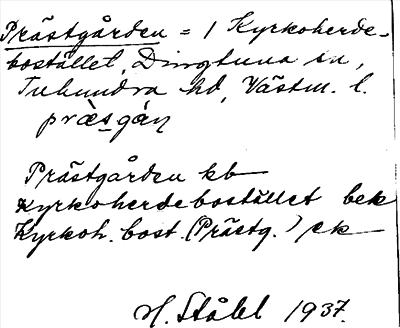 Prästgården = 1 Kyrkoherde-
bostället, Dingtuna sn,
Tuhundra hd, Västm. l.
prȁ̀sgán
Prästgården kb
Kyrkoherdebostället bek
Kyrkoh. bost. (Prästg.) ek
H. Ståhl 1937.